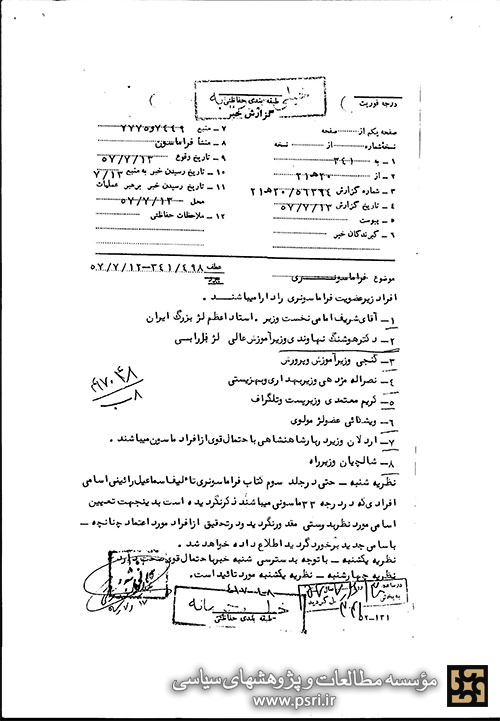 خیلی محرمانه
طبقه بندی حفاظتی
گزارش خبر
درجه فوریت ( )
صفحه یکم از صفحه
نسخه شماره از نسخه
۱ - به ۳۴۱
۲ - از ۲۰ه۲۱
۳ - شماره گزارش ۲۰/۵۶۳۹۴ه۲۱
۴ - تاریخ گزارش ۵۷/۷/۱۳
۵ - پیوست
۶ - گیرندگان خبر
۷ - منبع ۷۴۴۹و۷۷۷۵
۸ - منشأ فراماسون
۹ - تاریخ وقوع ۵۷/۷/۱۲
۱۰ - تاریخ رسیدن خبر به منبع ۷/۱۳
۱۱ - تاریخ رسیدن خبر برهبر عملیات
محل ۵۷/۷/۱۳
۱۲ - ملاحظات حفاظتی
موضوع فراماسونری
عطف ۳۴۱/۴۹۸-۵۷/۷/۱۲
افراد زیر عضویت فراماسونری را دارا میباشند .
۱- آقای شریف امامی نخست وزیر . استاد اعظم لژ بزرگ ایران
۲- دکتر هوشنگ نهاوندی وزیر آموزش عالی لژ فارابی
۳- گنجی وزیر آموزش وپرورش
۴- نصراله مژدهی وزیر بهداری وبهزیستی
۵- کریم معتمدی وزیر پست وتلگراف
۶- ویشکائی عضو لژ مولوی
۷- اردلان وزیر دربار شاهنشاهی با حتمال قوی از افراد ماسون میباشند .
۸- شالچیان وزیر راه
نظریه شنبه - حتی در جلد سوم کتاب فراماسونری تالیف اسماعیل رائینی اسامی
افرادی که در درجه ۳۳ ماسونی میباشند ذکر نگردیده است بدینجهت تعیین
اسامی مورد نظر بدرستی مقدور نگردید ودر تحقیق از افراد مورد اعتماد چنانچه -
باسامی جدید برخورد گردید اطلاع داده خواهد شد .
نظریه یکشنبه - با توجه بدسترسی شنبه خبر با حتمال قوی صحت دارد
نظریه چهارشنبه - نظریه یکشنبه مورد تائید است .
طبقه بندی حفاظتی
۱۳۱-۵۲
مؤسسه مطالعات و پژوهشهای سیاسی
www.psri.ir